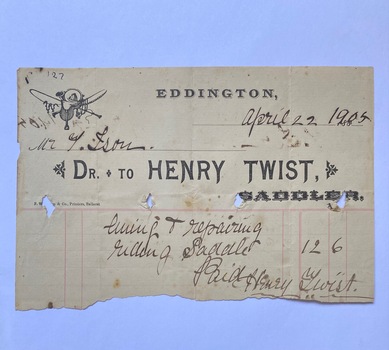 127
EDDINGTON,
April 22 1905
Mr T. Ison.
DR. TO HENRY TWIST,
SADDLER.
& Co., Printers, Ballarat
lining & repairing
riding Saddle 12 6
Paid
Henry Twist.